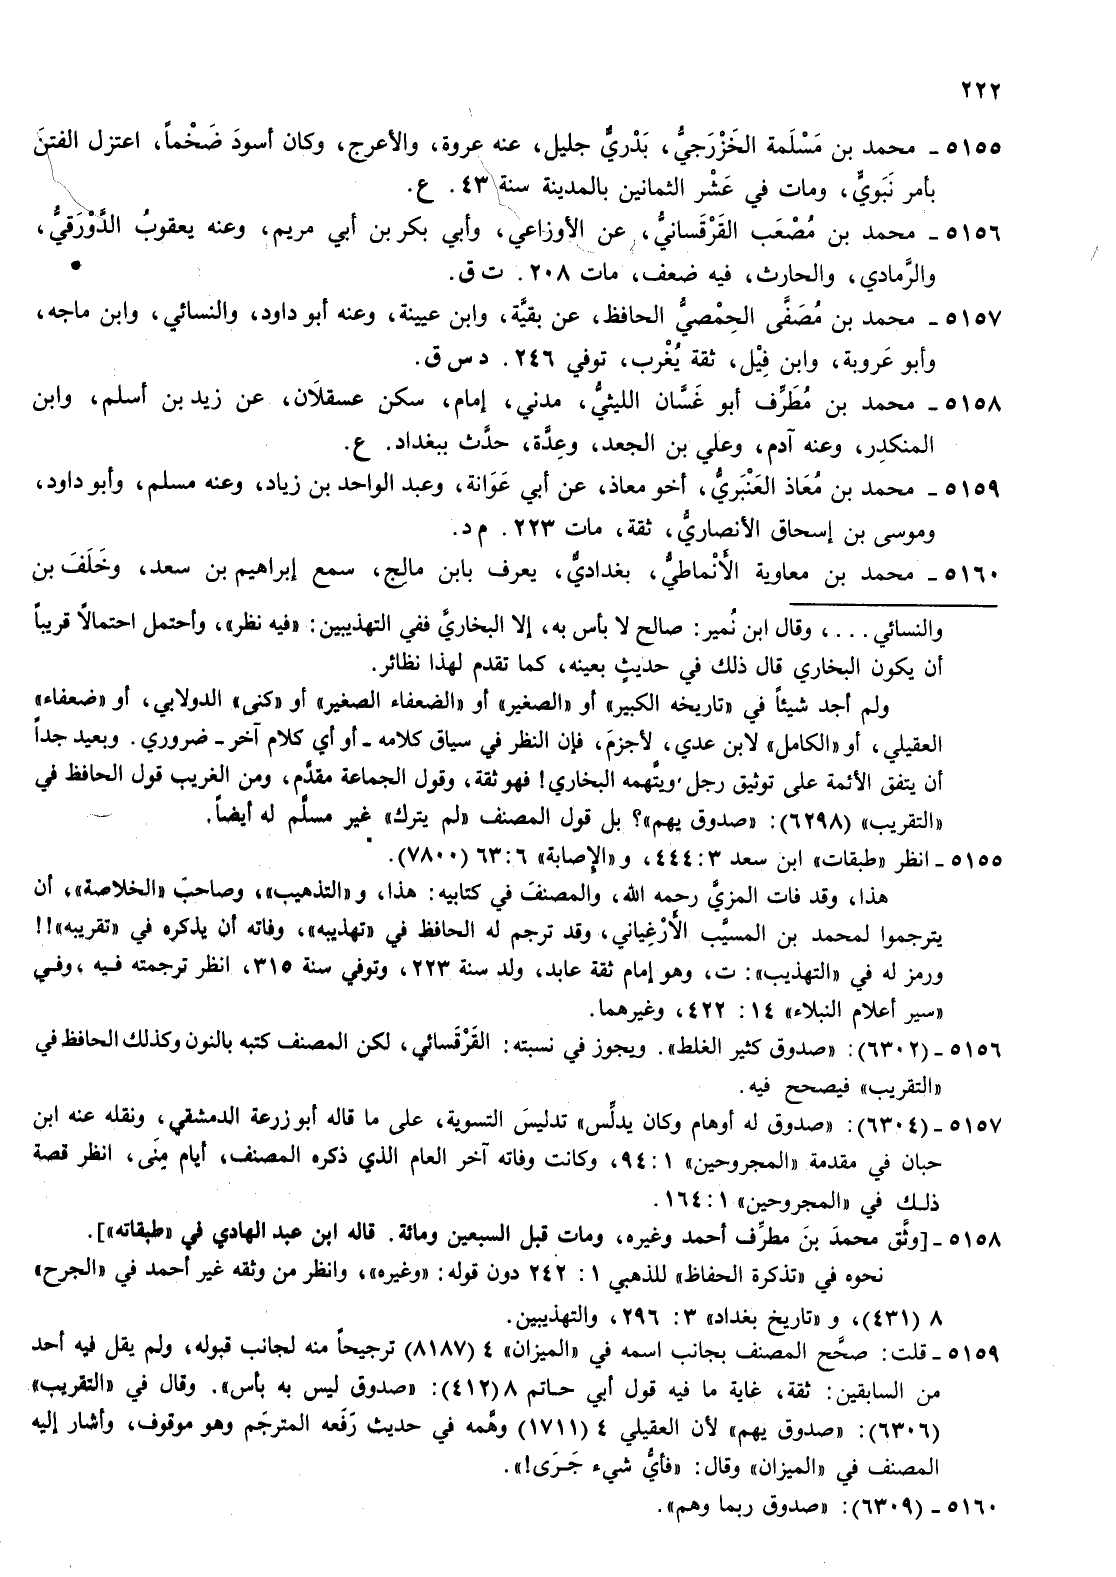 ٢٢٢
٥١٥٥ ـ محمد بن مَسْلَمة الخَزْرَجيُّ، بَدْريٌّ جليل، عنه عروة، والأعرج، وكان أسودَ ضَخْماً، اعتزل الفتنَ
بأمر نَبَويٍّ، ومات في عَشْر الثمانين بالمدينة سنة ٤٣. ع.
٥١٥٦ ـ محمد بن مُصْعَب القَرْقَسانيُّ، عن الأوزاعي، وأبي بكر بن أبي مريم، وعنه يعقوبُ الدَّوْرَقيُّ،
والرَّمادي، والحارث، فيه ضعف، مات ٢٠٨. ت ق.
٥١٥٧ ـ محمد بن مُصَفَّى الحِمْصيُّ الحافظ، عن بقيَّة، وابن عيينة، وعنه أبو داود، والنسائي، وابن ماجه،
وأبو عَروبة، وابن فِيْل، ثقة يُغْرب، توفي ٢٤٦. د س ق.
٥١٥٨ ـ محمد بن مُطَرِّف أبو غَسَّان الليثيُّ، مدني، إمام، سكن عسقلَان، عن زيد بن أسلم، وابن
المنكدِر، وعنه آدم، وعلي بن الجعد، وعِدَّة، حدَّث ببغداد. ع.
٥١٥٩ ـ محمد بن مُعَاذ العَنْبَريُّ، أخو معاذ، عن أبي عَوَانة، وعبد الواحد بن زياد، وعنه مسلم، وأبو داود،
وموسى بن إسحاق الأنصاريُّ، ثقة، مات ٢٢٣. م د.
٥١٦٠ ـ محمد بن معاوية الأَنْماطيُّ، بغداديٌّ، يعرف بابن مالج، سمع إبراهيم بن سعد، وخَلَفَ بن
والنسائي...، وقال ابن نُمير: صالح لا بأس به، إلا البخاريَّ ففي التهذيبين: «فيه نظر»، وأحتمل احتمالاً قريباً
أن يكون البخاري قال ذلك في حديثٍ بعينه، كما تقدم لهذا نظائر.
ولم أجد شيئاً في «تاريخه الكبير» أو «الصغير» أو «الضعفاء الصغير» أو «كنى» الدولابي، أو «ضعفاء»
العقيلي، أو «الكامل» لابن عدي، لأجزمَ، فإن النظر في سياق كلامه ـ أو أي كلام آخر ـ ضروري. وبعيد جداً
أن يتفق الأئمة على توثيق رجل ويتَّهمه البخاري! فهو ثقة، وقول الجماعة مقدَّم، ومن الغريب قول الحافظ في
«التقريب» (٦٢٩٨): «صدوق يهم»؟ بل قول المصنف «لم يترك» غير مسلَّم له أيضاً.
٥١٥٥ ـ انظر «طبقات» ابن سعد ٣: ٤٤٤، و «الإصابة» ٦: ٦٣ (٧٨٠٠).
هذا، وقد فات المزيَّ رحمه الله، والمصنفَ في كتابيه: هذا، و «التذهيب»، وصاحبَ «الخلاصة»، أن
يترجموا لمحمد بن المسيَّب الأَرْغِياني، وقد ترجم له الحافظ في «تهذيبه»، وفاته أن يذكره في «تقريبه»!!
ورمز له في «التهذيب»: ت، وهو إمام ثقة عابد، ولد سنة ٢٢٣، وتوفي سنة ٣١٥، انظر ترجمته فيه، وفي
«سير أعلام النبلاء» ١٤: ٤٢٢، وغيرهما.
٥١٥٦ ـ (٦٣٠٢): «صدوق كثير الغلط». ويجوز في نسبته: القَرْقَسائي، لكن المصنف كتبه بالنون وكذلك الحافظ في
«التقريب» فيصحح فيه.
٥١٥٧ ـ (٦٣٠٤): «صدوق له أوهام وكان يدلِّس» تدليسَ التسوية، على ما قاله أبو زرعة الدمشقي، ونقله عنه ابن
حبان في مقدمة «المجروحين» ١: ٩٤، وكانت وفاته آخر العام الذي ذكره المصنف، أيام مِنَى، انظر قصة
ذلك في «المجروحين» ١: ١٦٤.
٥١٥٨ ـ [وثَّق محمدَ بنَ مطرِّف أحمد وغيره، ومات قبل السبعين ومائة. قاله ابن عبد الهادي في «طبقاته»].
نحوه في «تذكرة الحفاظ» للذهبي ١: ٢٤٢ دون قوله: «وغيره»، وانظر من وثقه غير أحمد في «الجرح»
٨ (٤٣١)، و «تاريخ بغداد» ٣: ٢٩٦، والتهذيبين.
٥١٥٩ ـ قلت: صحَّح المصنف بجانب اسمه في «الميزان» ٤ (٨١٨٧) ترجيحاً منه لجانب قبوله، ولم يقل فيه أحد
من السابقين: ثقة، غاية ما فيه قول أبي حاتم ٨ (٤١٢): «صدوق ليس به بأس». وقال في «التقريب»
(٦٣٠٦): «صدوق يهم» لأن العقيلي ٤ (١٧١١) وهَّمه في حديث رَفَعه المترجَم وهو موقوف، وأشار إليه
المصنف في «الميزان» وقال: «فأيُّ شيء جَرَى!».
٥١٦٠ ـ (٦٣٠٩): «صدوق ربما وهم».